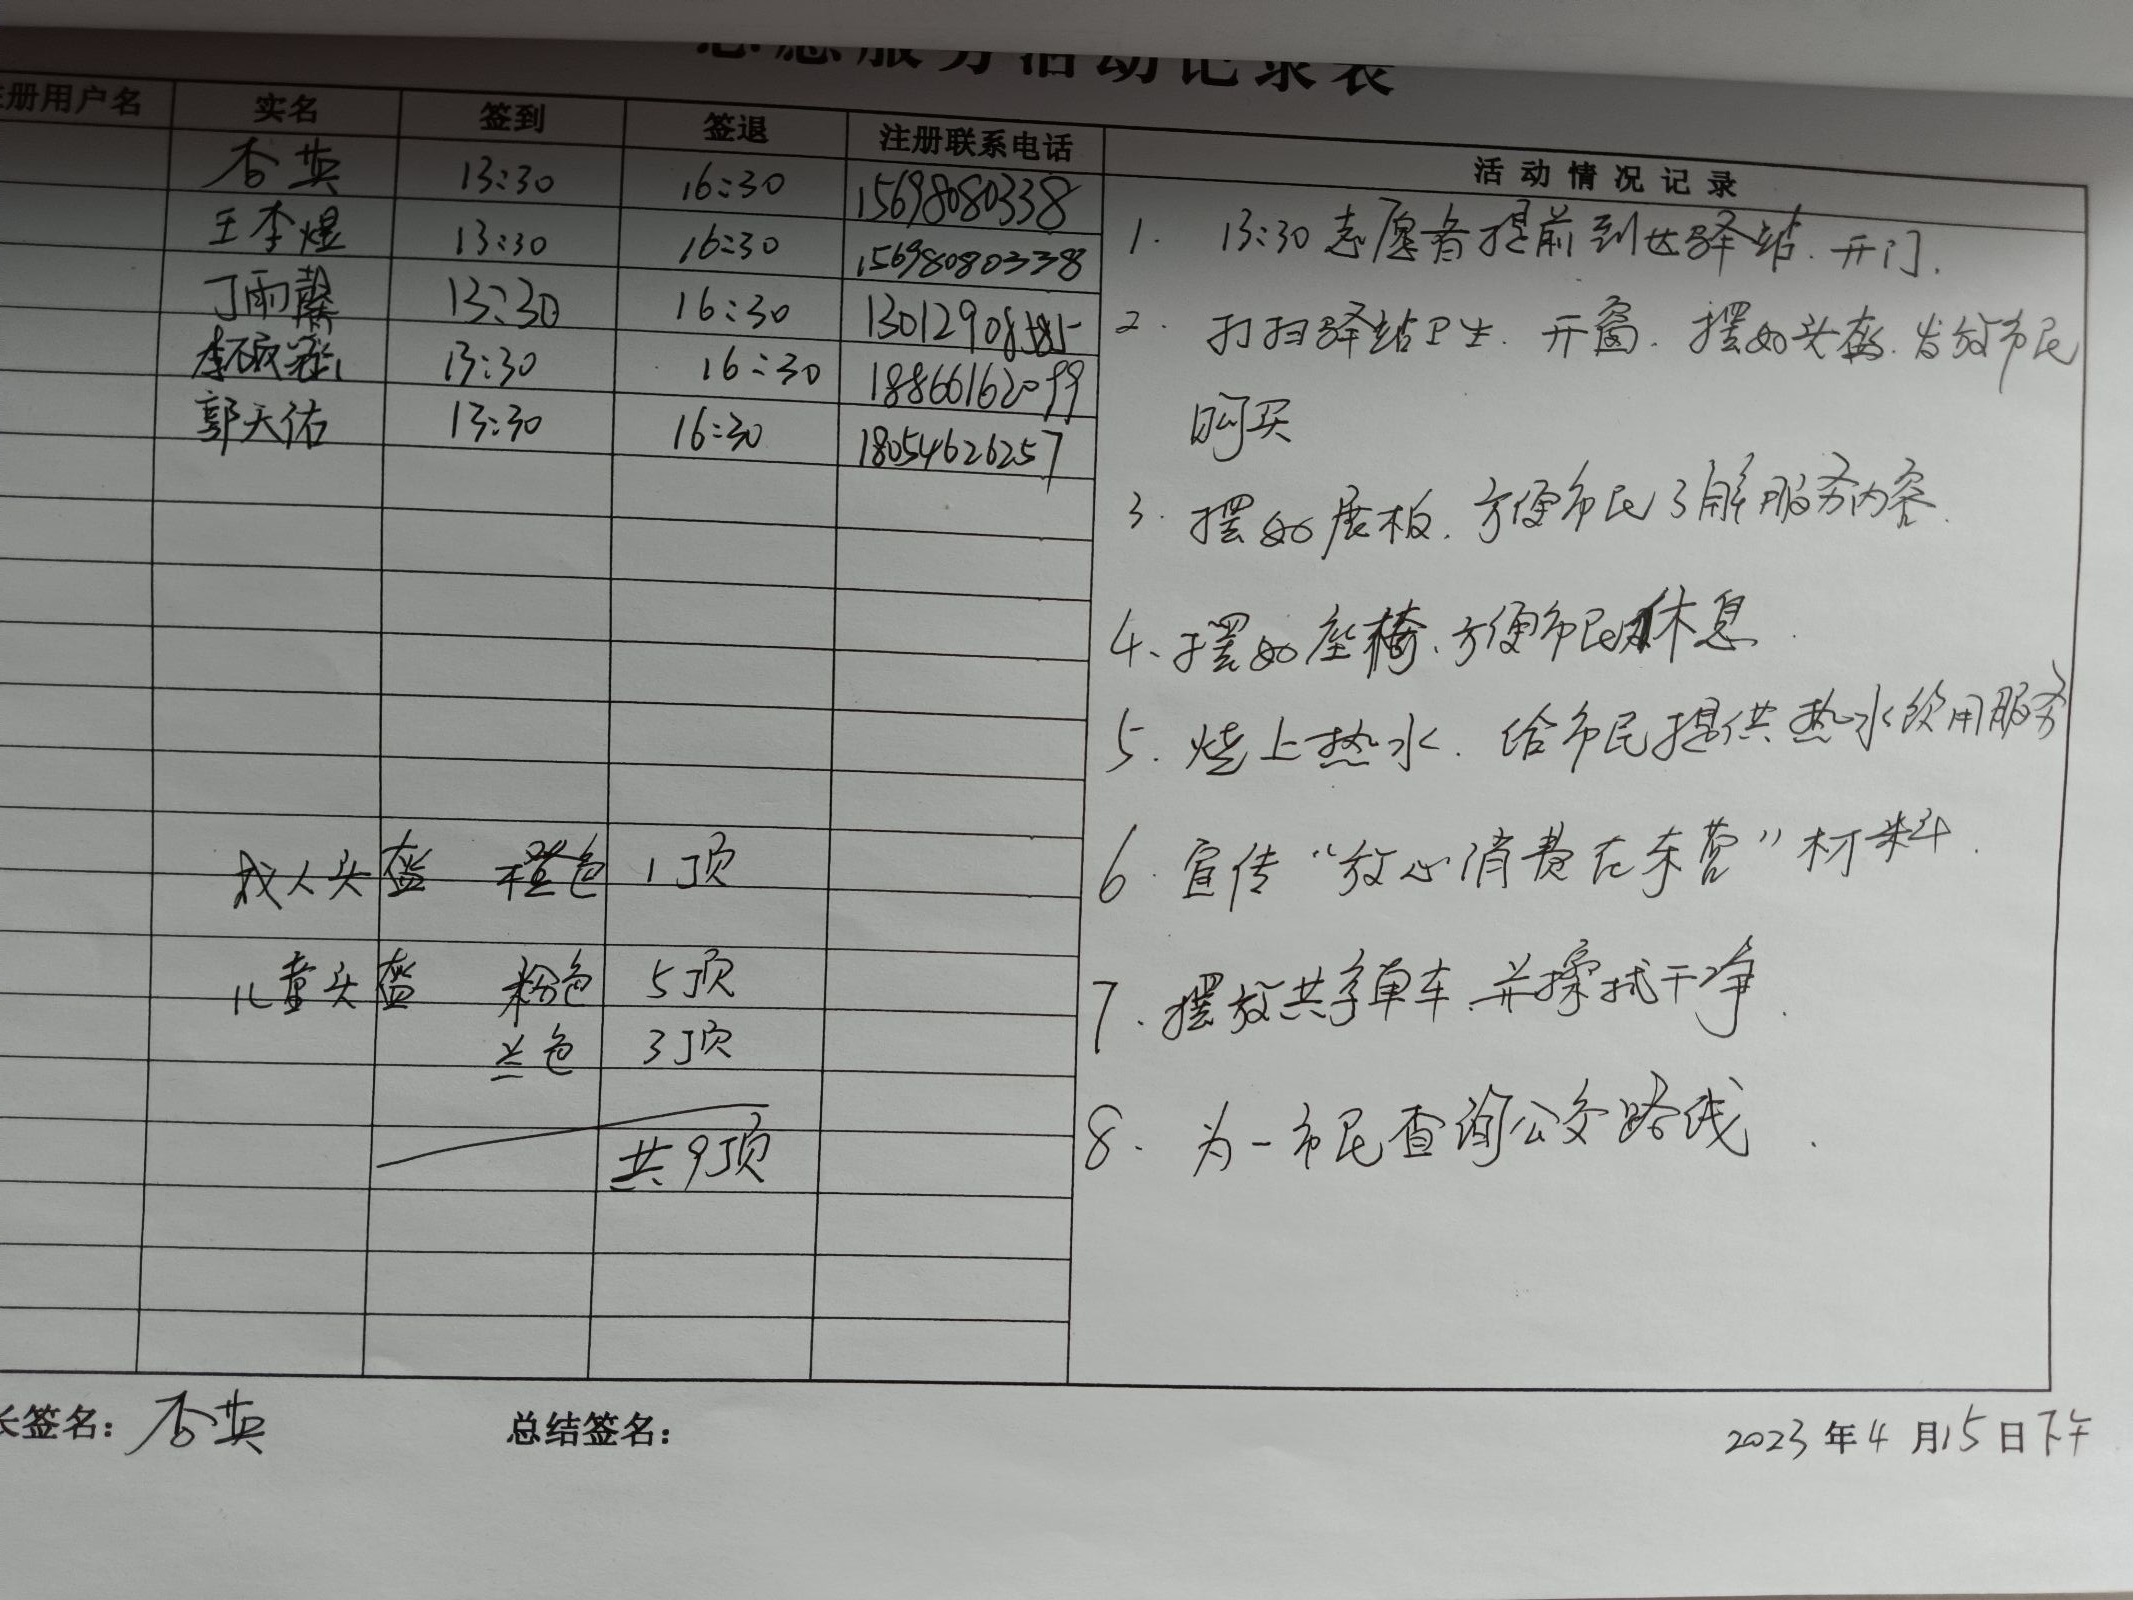 志愿服务活动记录表
注册用户名 实名 签到 签退 注册联系电话 活动情况记录
杏英 13:30 16:30 15698080338
王李煜 13:30 16:30 15698080338
丁雨馨 13:30 16:30
13:30 16:30 18866162099
郭天佑 13:30 16:30 18054626257
成人头盔 橙色 1顶
儿童头盔 粉色 5顶
兰色 3顶
共9顶
1. 13:30志愿者提前到达驿站.开门.
2. 打扫驿站卫生.开窗.摆好头盔.发放市民
购买
3. 摆好展板.方便市民了解服务内容.
4、摆好座椅、方便市民休息
5. 烧上热水.给市民提供热水饮用服务
6. 宣传“放心消费在东营”材料.
7. 摆放共享单车.并擦拭干净.
8. 为一市民查询公交路线.
长签名：杏英 总结签名： 2023年4月15日下午